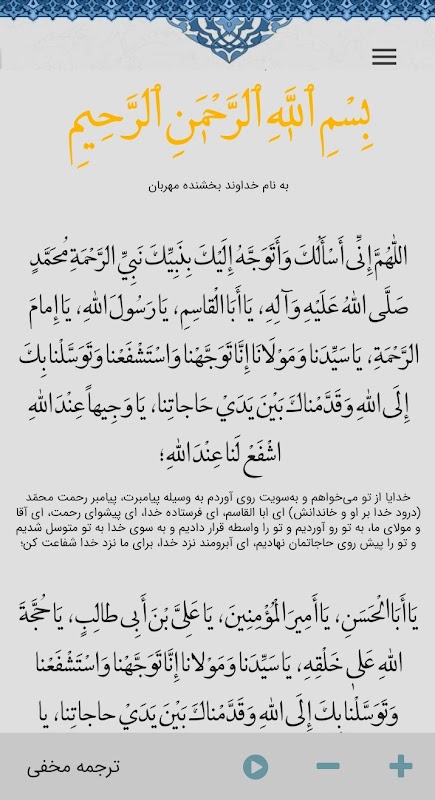 بِسْمِ ٱللَّٰهِ ٱلرَّحْمَٰنِ ٱلرَّحِيمِ
به نام خداوند بخشنده مهربان
اللّٰهُمَّ إِنِّى أَسْأَلُكَ وَأَتَوَجَّهُ إِلَيْكَ بِنَبِيِّكَ نَبِيِّ الرَّحْمَةِ مُحَمَّدٍ
صَلَّى اللّٰهُ عَلَيْهِ وَآلِهِ، يَا أَبَا الْقاسِمِ، يَا رَسُولَ اللّٰهِ، يَا إِمامَ
الرَّحْمَةِ، يَا سَيِّدَنا وَمَوْلَانَا إِنَّا تَوَجَّهْنا وَاسْتَشْفَعْنا وَتَوَسَّلْنا بِكَ
إِلَى اللّٰهِ وَقَدَّمْناكَ بَيْنَ يَدَيْ حَاجاتِنا، يَا وَجِيهاً عِنْدَ اللّٰهِ
اشْفَعْ لَنا عِنْدَ اللّٰهِ؛
خدایا از تو می‌خواهم و به‌سویت روی آوردم به وسیله پیامبرت، پیامبر رحمت محمّد
(درود خدا بر او و خاندانش) ای ابا القاسم، ای فرستاده خدا، ای پیشوای رحمت، ای آقا
و مولای ما، به تو رو آوردیم و تو را واسطه قرار دادیم و به سوی خدا به تو متوسل شدیم
و تو را پیش روی حاجاتمان نهادیم، ای آبرومند نزد خدا، برای ما نزد خدا شفاعت کن؛
يَا أَبَا الْحَسَنِ، يَا أَمِيرَ الْمُؤْمِنِينَ، يَا عَلِىَّ بْنَ أَبِى طالِبٍ، يَا حُجَّةَ
اللّٰهِ عَلىٰ خَلْقِهِ، يَا سَيِّدَنا وَمَوْلانا إِنَّا تَوَجَّهْنا وَاسْتَشْفَعْنا
وَتَوَسَّلْنا بِكَ إِلَى اللّٰهِ وَقَدَّمْناكَ بَيْنَ يَدَيْ حاجاتِنا، يا
ترجمه مخفی